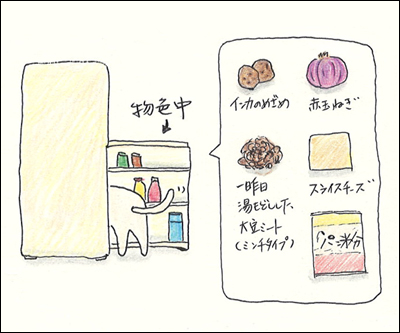 物色中
インカのめざめ
赤玉ねぎ
一昨日
湯もどしした、
大豆ミート
(ミンチタイプ)
スライスチーズ
パン粉